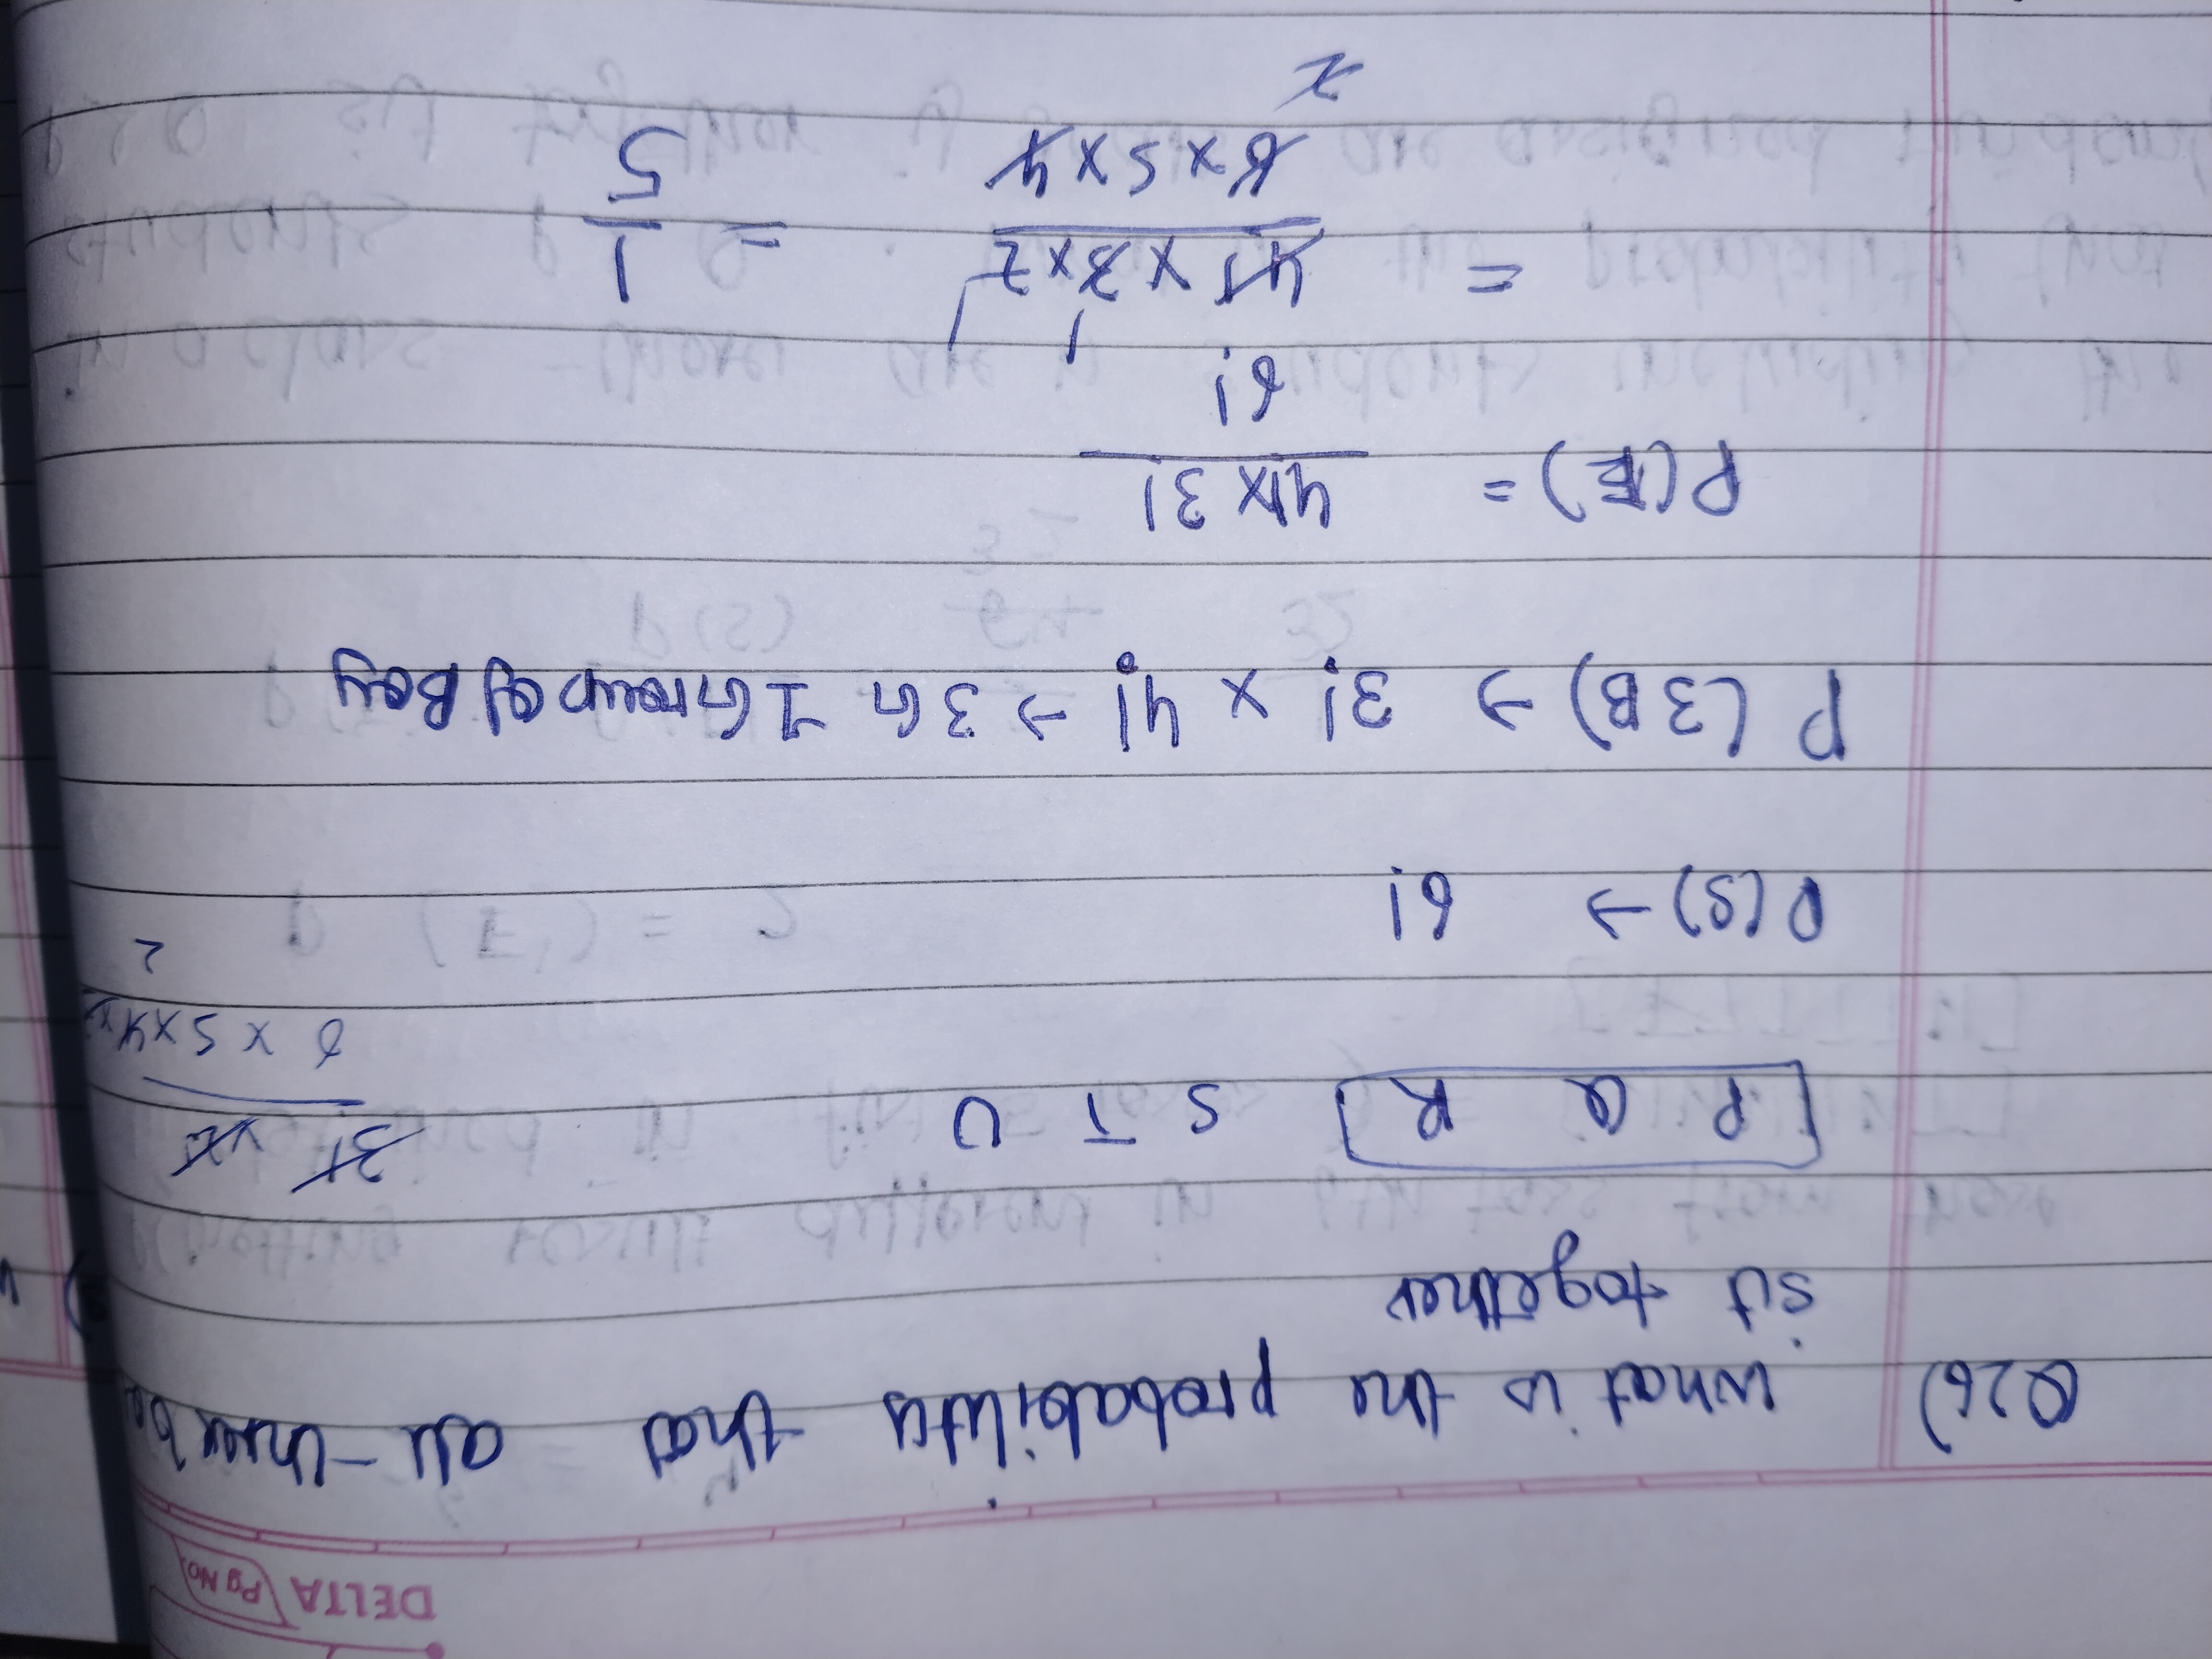 DELTA Pg No.
Q26) what is the probability that all three
sit together
P Q R S T U
3! x 4!
6 x 5 x 4 x
2
P(S) → 6!
P(3B) → 3! x 4! → 3G 1 Group of Boy
P(E) = 4! x 3!
6!
1 1
= 4! x 3 x 2 = 1
6 x 5 x 4 5
2